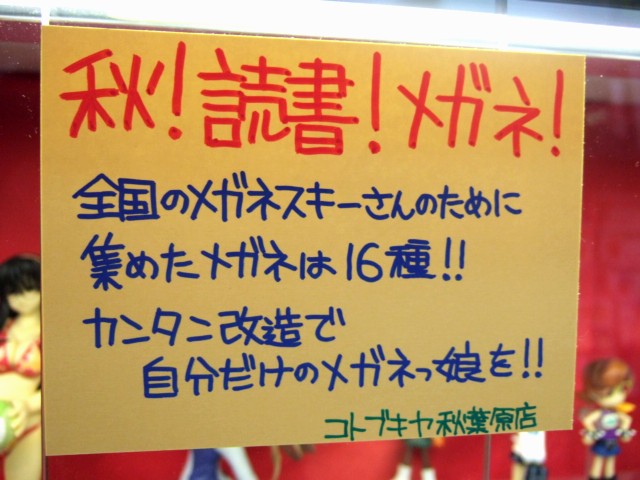 秋!読書!メガネ!
全国のメガネスキーさんのために
集めたメガネは16種!!
カンタニ改造で
自分だけのメガネっ娘を!!
コトブキヤ秋葉原店